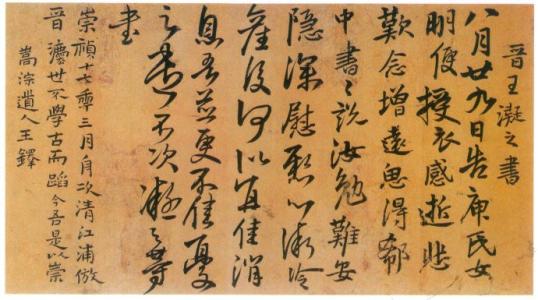 晋王凝之書
八月廿九日告庾氏女
明便授衣感逝悲
歎念增遠思得郗
中書〻說汝勉難安
隐深慰懸心微冷
産後何似宜佳消
息吾並更不佳憂
之 不次凝之等
書
崇禎十七秊三月舟次清江浦倣
晋 世不學古而蹈今吾是以崇
嵩淙遺人王鐸